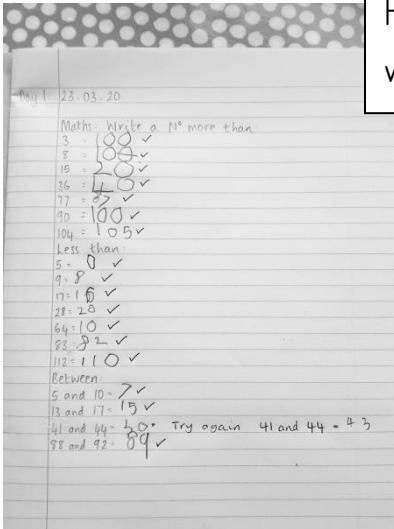 Day 1. 23-03-20
Maths: Write a Nº more than:
3 = 100 ✓
8 = ✓
15 = 20 ✓
36 = 40 ✓
77 = 87 ✓
90 = 100 ✓
104 = 105 ✓
Less than:
5 = 0 ✓
9 = 8 ✓
17 = 16 ✓
28 = 20 ✓
64 = 10 ✓
83 = 82 ✓
112 = 110 ✓
Between:
5 and 10 = 7 ✓
13 and 17 = 15 ✓
41 and 44 = • Try again 41 and 44 = 43
88 and 92 = 89 ✓